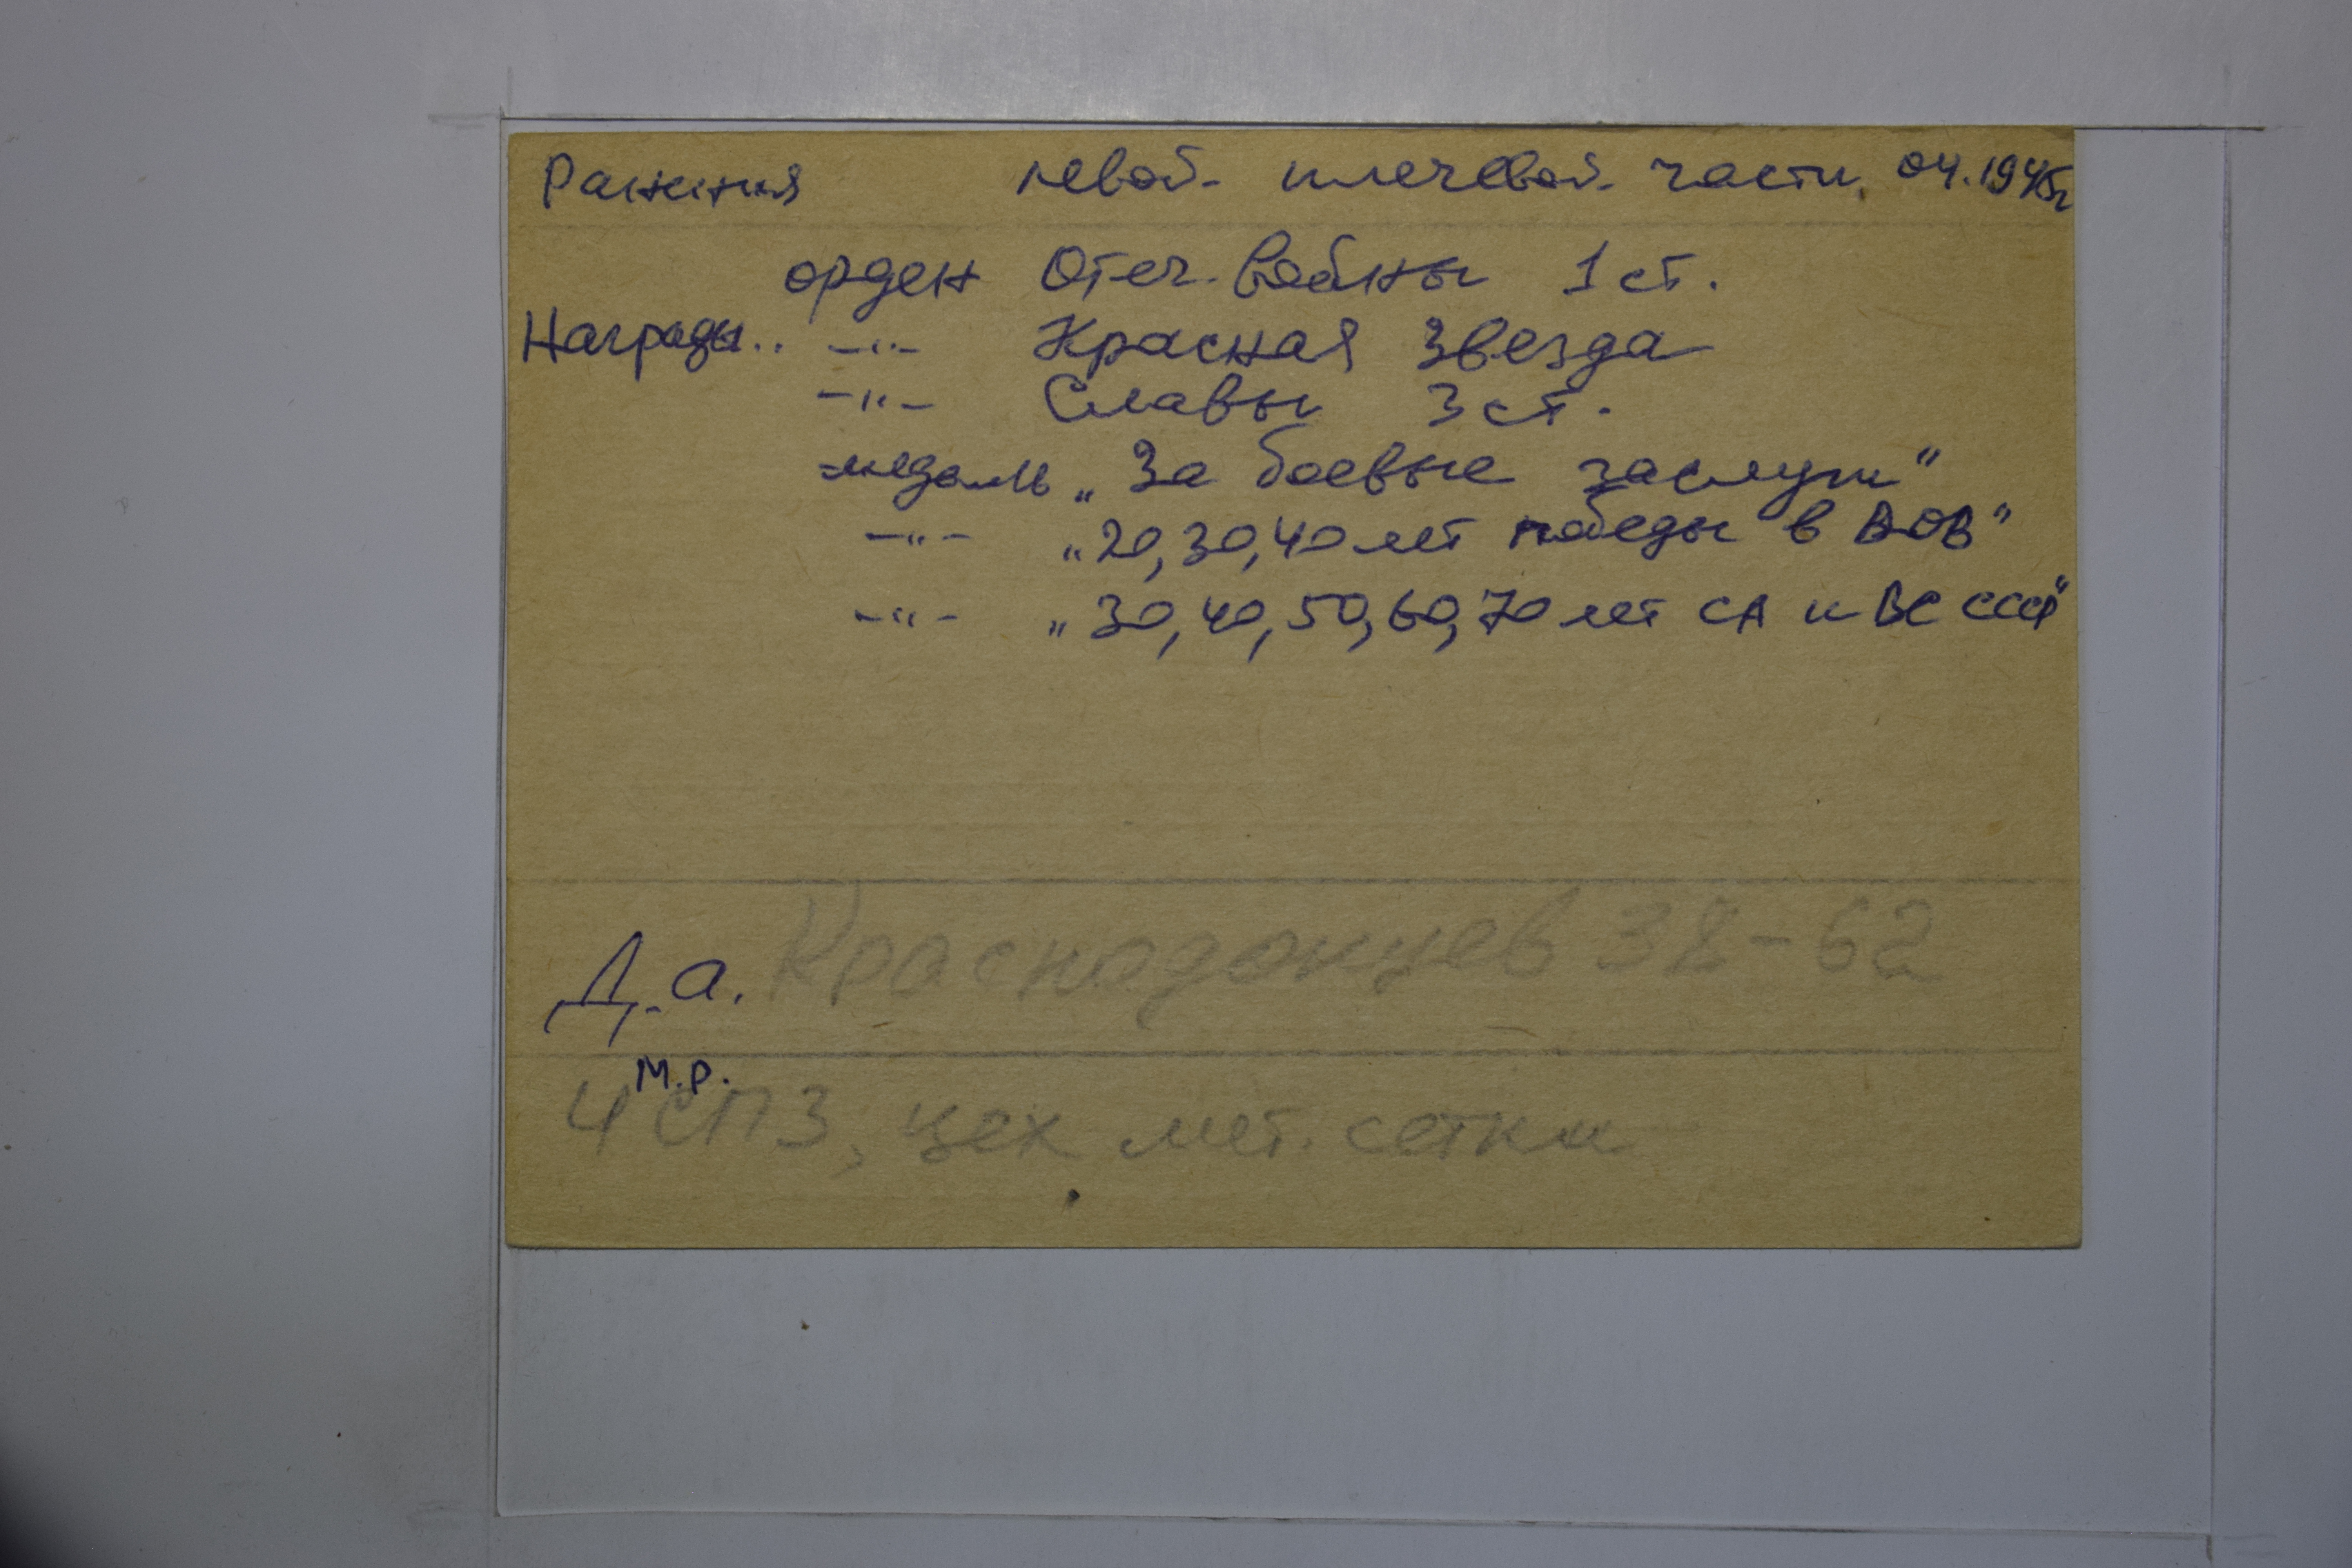 Ранения левой плечевой части. 04.1945г
орден Отеч. Войны 1 ст.
Награды.. -"- Красная Звезда
-"- Славы 3 ст.
медаль „За боевые заслуги"
-"- „20, 30, 40 лет победы в ВОВ"
-"- „30, 40, 50, 60, 70 лет СА и ВС СССР"
Д.а. Краснодонцев 38-62
м.р.
ЧСПЗ, цех мет. сетки